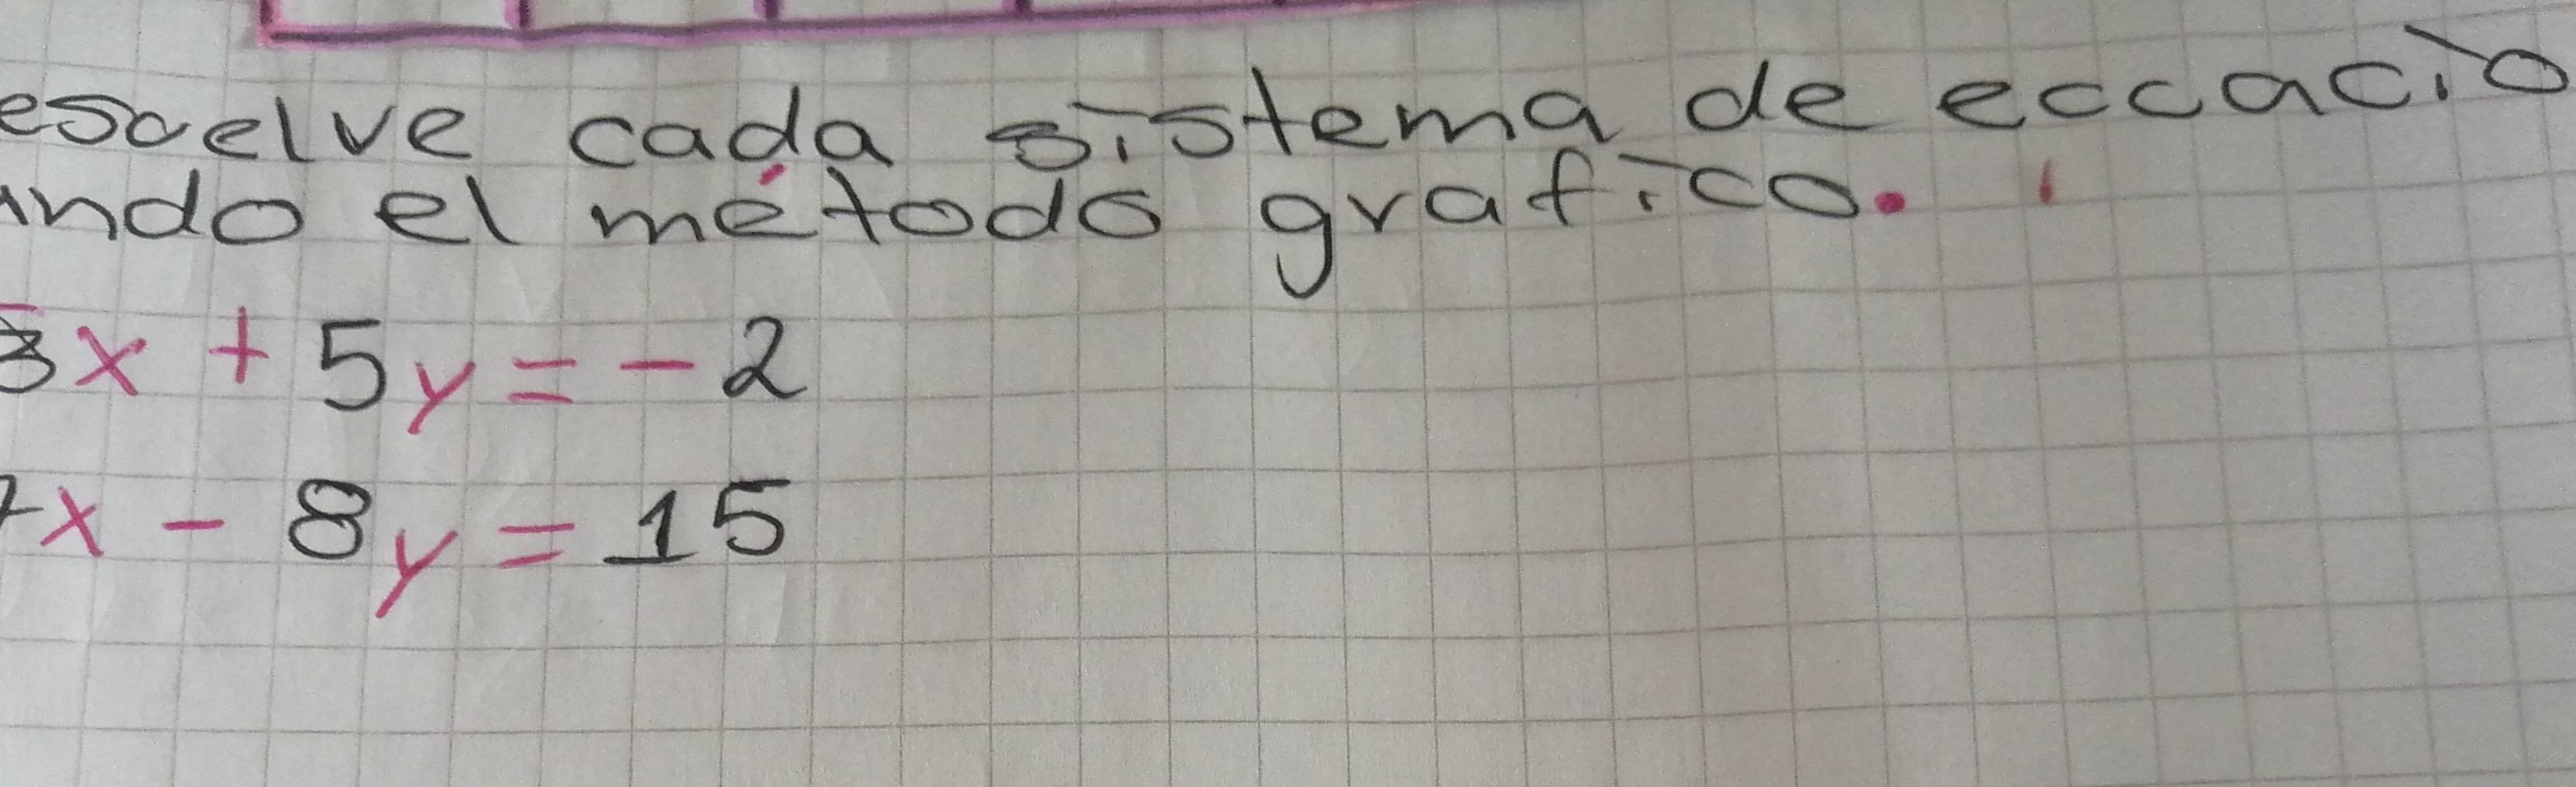 esuelve cada sistema de ecuacio
ando el método grafico.
3x + 5y = - 2
7x - 8y = 15